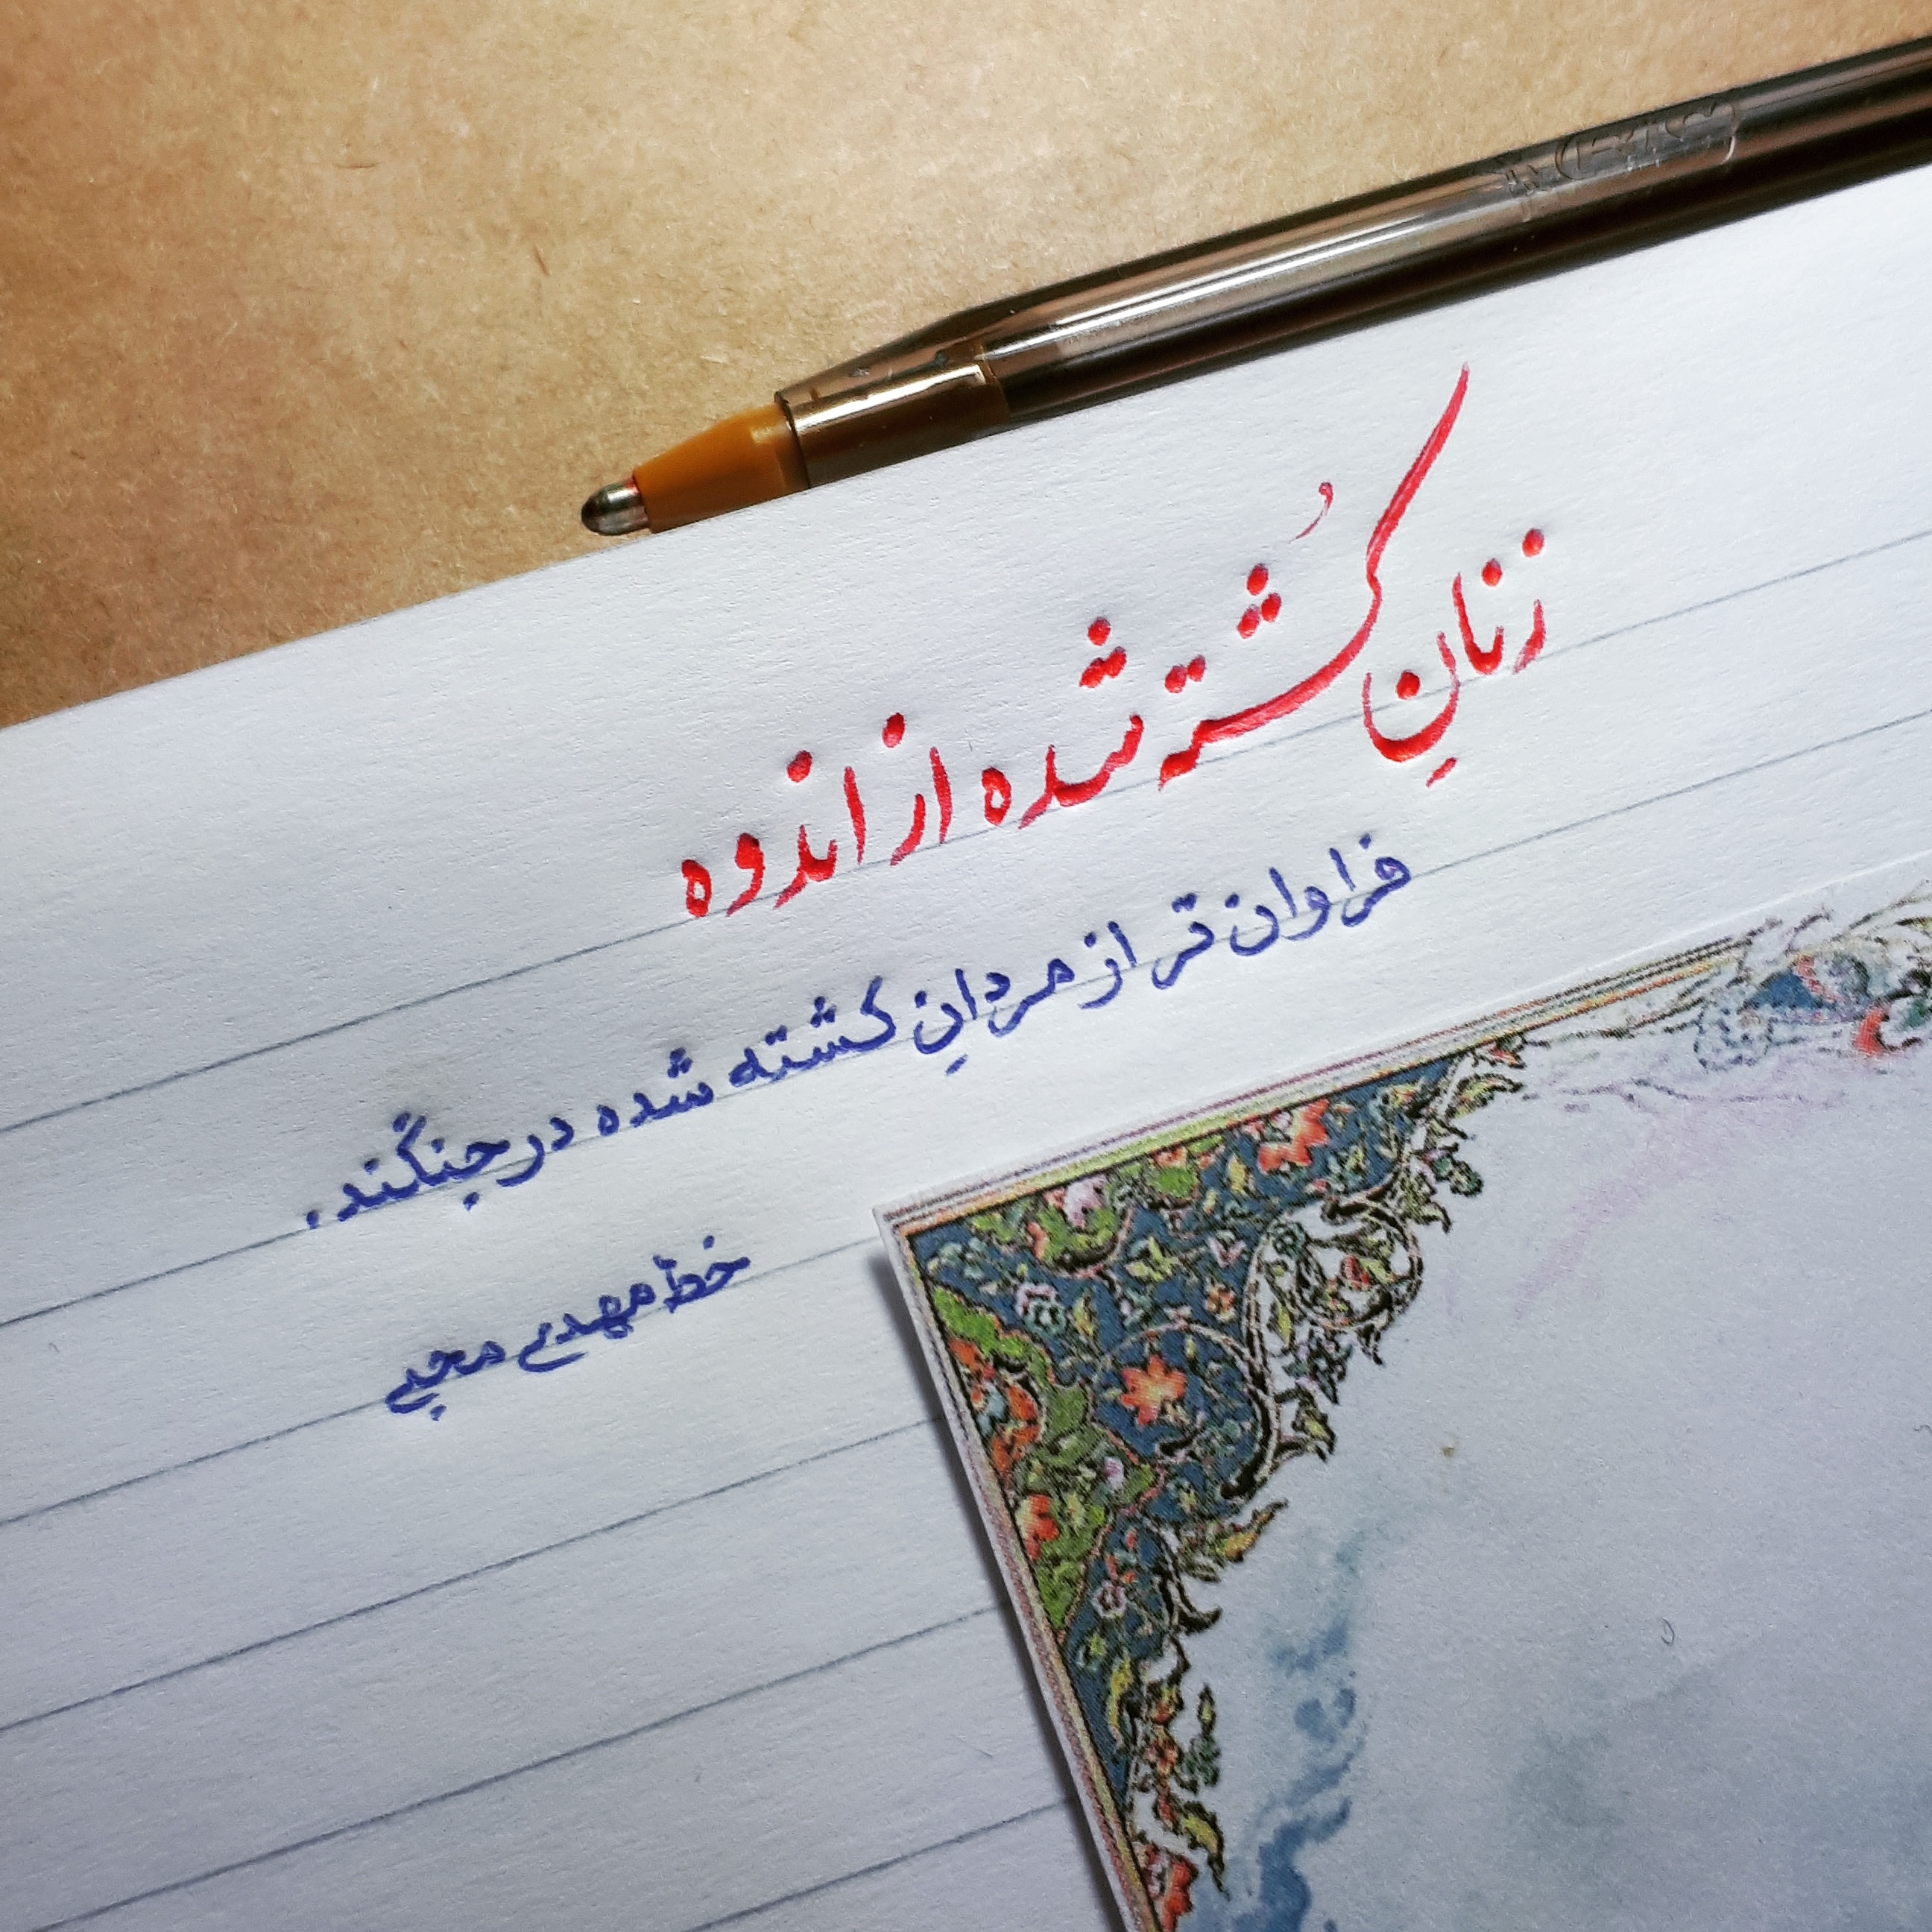 زنانِ کُشته شده از اندوه
فراوان تر از مردانِ کشته شده در جنگند.
خط مهدی